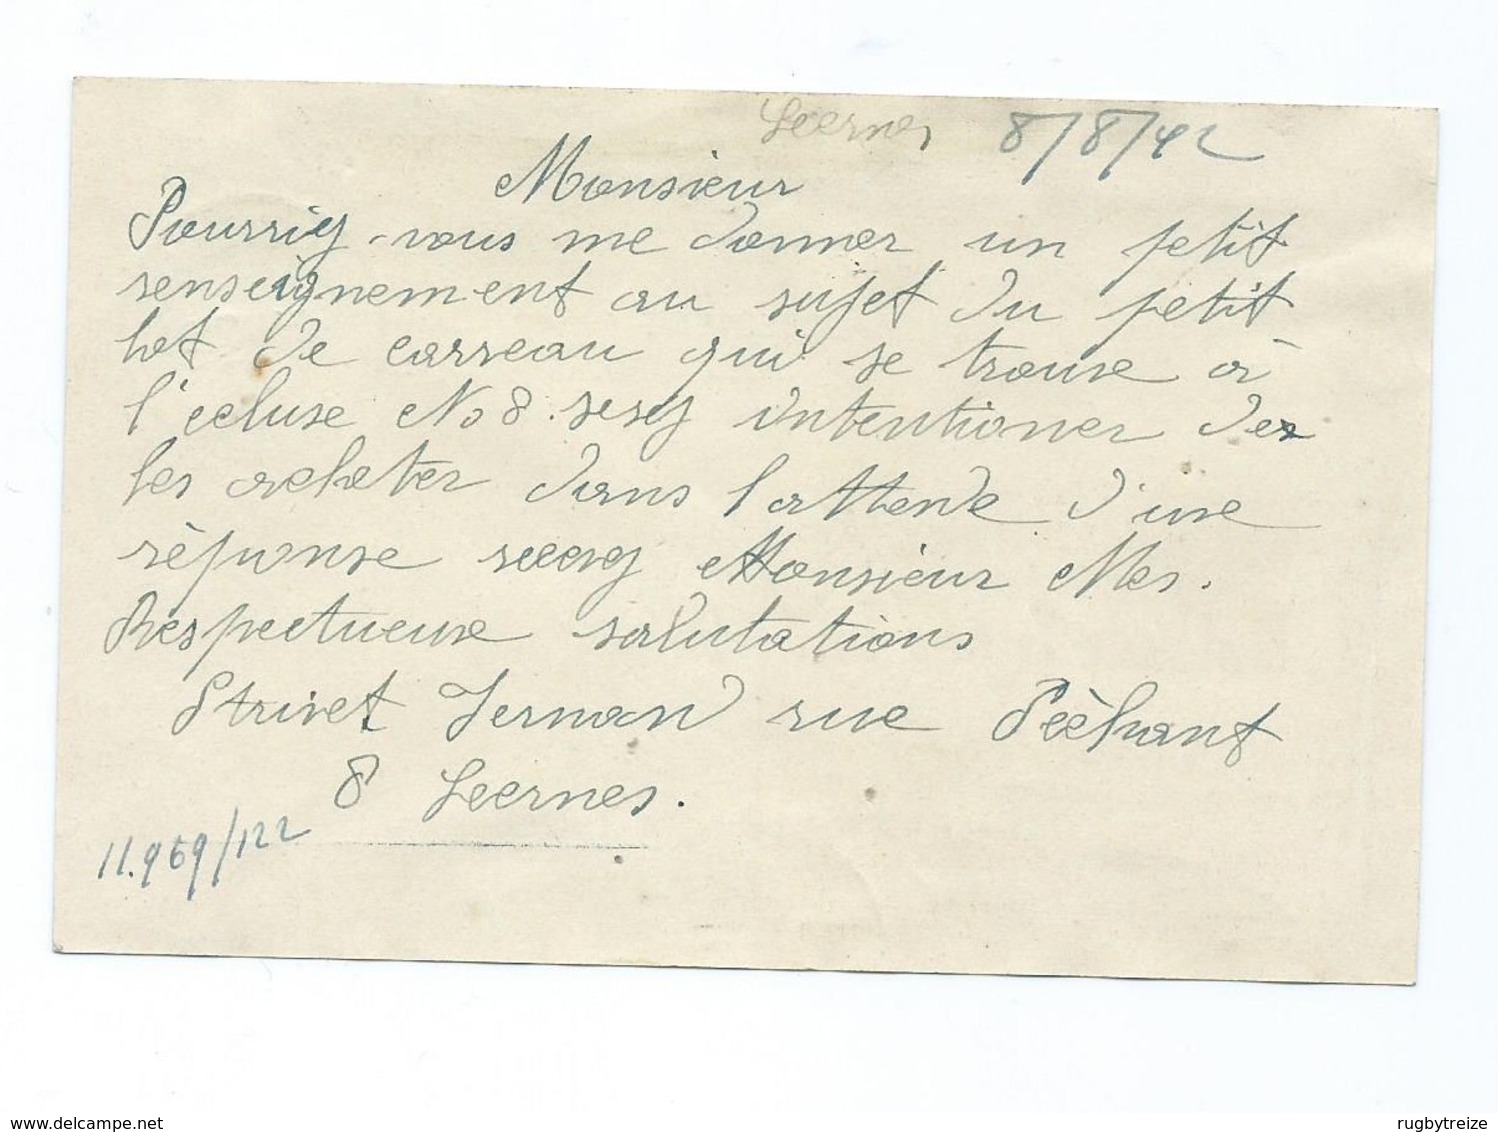 Leernes 8/8/42
Monsieur
Pourriez-vous me donner un petit
renseignement au sujet du petit
lot de carreau qui se trouve à
l'écluse No 8. intentioner de
les acheter dans l'attende d'une
réponse Monsieur Mes.
Respectueuse salutations
Strivet Fernand rue Pèchant
8 Leernes.
11.969/122
www.delcampe.net
rugbytreize